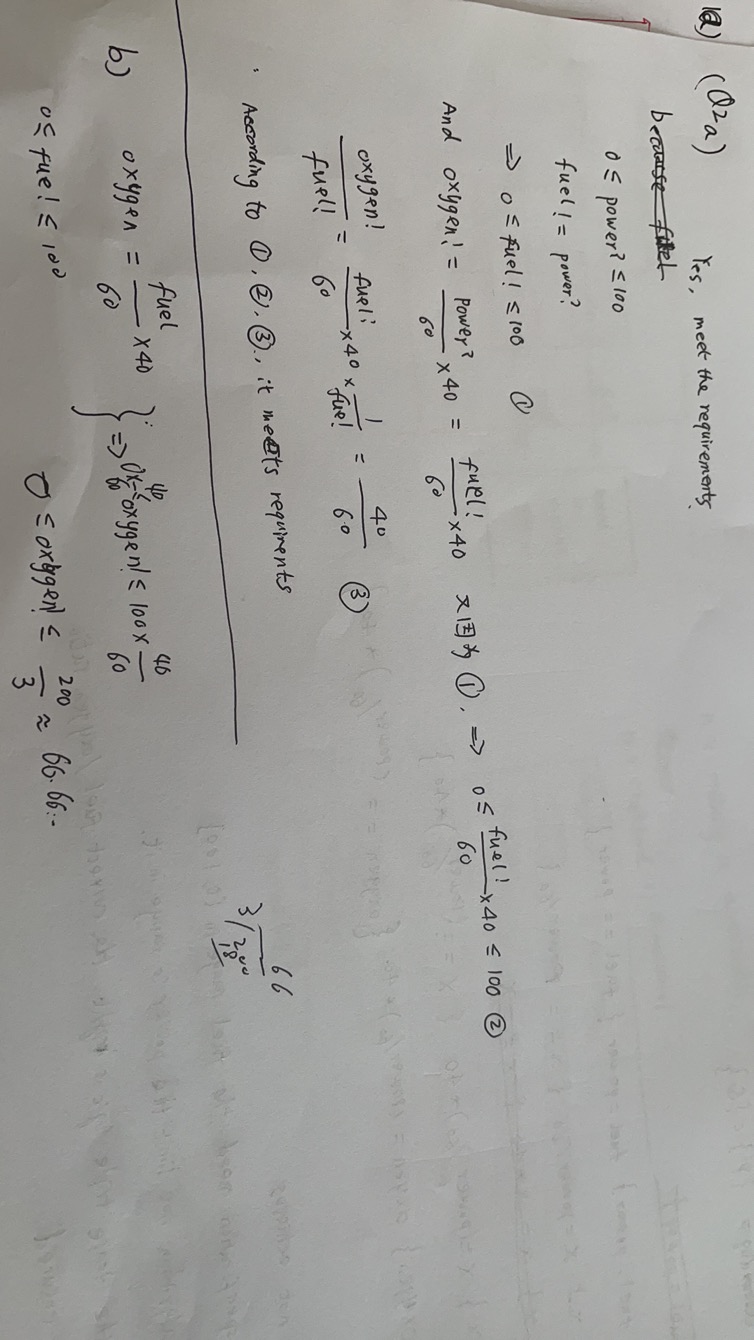 (Q2a) Yes, meet the requirements.
0 ≤ power? ≤ 100
fuel! = power?
⇒ 0 ≤ fuel! ≤ 100 ①
And oxygen! = power?/60 × 40 = fuel!/60 × 40 又因为 ①, ⇒ 0 ≤ fuel!/60 × 40 ≤ 100 ②
oxygen!/fuel! = fuel!/60 × 40 × 1/fuel! = 40/60 ③
∴ According to ①, ②, ③, it meets requirments
b) oxygen = fuel/60 × 40 } ⇒ oxygen! ≤ 100 ×
0 ≤ fuel! ≤ 100
0 ≤ oxygen! ≤ 200/3 ≈ 66.66..
66
3/200
18